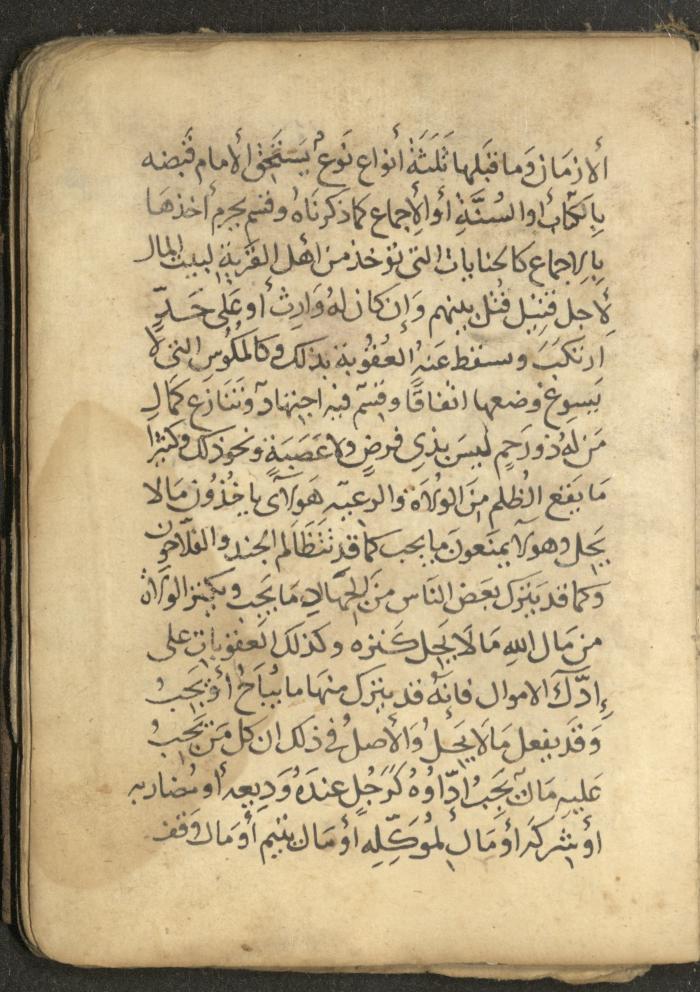 الازمان وما قبلها ثَلثَة أنواع نَوع يَستَحق الامام قَبضه
بِالكتاب أو السُنَّةِ أو الأجماع كما ذكرنَاهُ وقسم يحرم أخذهَا
بِالاجماع كالجنايات التى توخذ من اهل القَريةِ لبيت المال
لِأجل قتِيل قُتل بينهم وَإن كان لهُ وَارث أو عَلى حَدٍّ
ارتكبَ وسقط عَنهُ العقُوبة بذلك وكالمكُوس التى لا
يَسوغ وضعها اتفاقًا وقسم فيه اجتهاد وتنَازع كمَالِ
مَن لهُ ذو رَحم ليسَ بذى فرضٍ ولا عَصَبَةٍ ونحو ذلك وكثيرًا
مَا يَقع الظلم منَ الولاه والرعيّه هَولآى ياخُذُون مَا لا
يحل وهولآ يمنَعونَ ما يجب كما قد تتظَالم الجند والفلاحون
وكما قد يَترك بعَض النَاس منَ الجهَاد مَا يَجب ويكنز الولاة
من مَال اللهِ مَا لَا يَحِل كَنزه وكذلك العقوبات على
إدَّآ الاموال فانهُ قد يترك منهَا ما يُبَاحُ أو يَجبُ
وَقَد يفعل مَا لَا يَحلُ وَالأصلُ فى ذلك ان كل مَن يَجبُ
عَليهِ مَالٌ يَجِبُ ادّاوُهُ كَرَجُلٍ عندَهُ وَدِيعه أو مُضاربه
أو شركَه أو مَال لمُوَكِّلِه أو مَال يتيم أو مَال وَقف